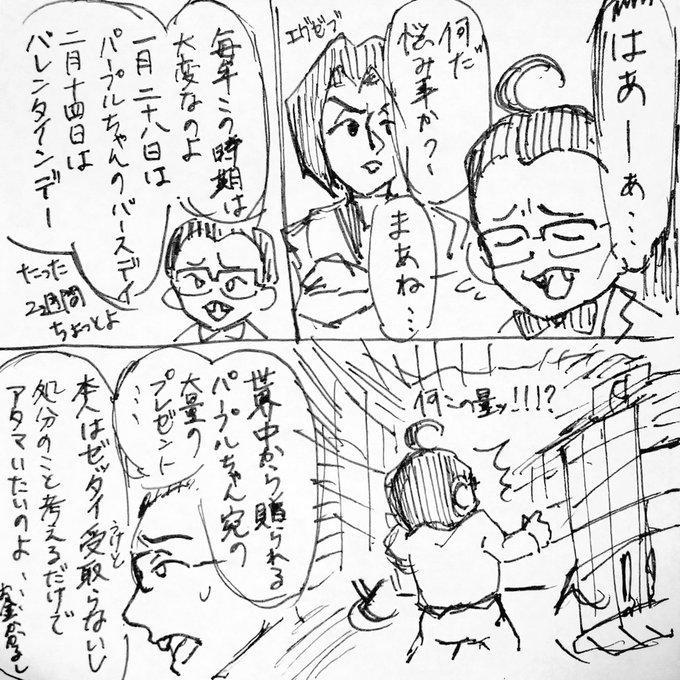 はあーぁ…
何だ
悩み事か?
エグゼブ
まあね…
毎年この時期は
大変なのよ
一月二十八日は
パープルちゃんのバースデイ
二月十四日は
バレンタインデー
たった
2週間
ちょっとよ
何この量ッ!!!?
世界中から贈られる
パープルちゃん宛の
大量の
プレゼント
…
本人はゼッタイ受取らないし
うけと
処分のこと考えるだけで
アタマいたいのよ…